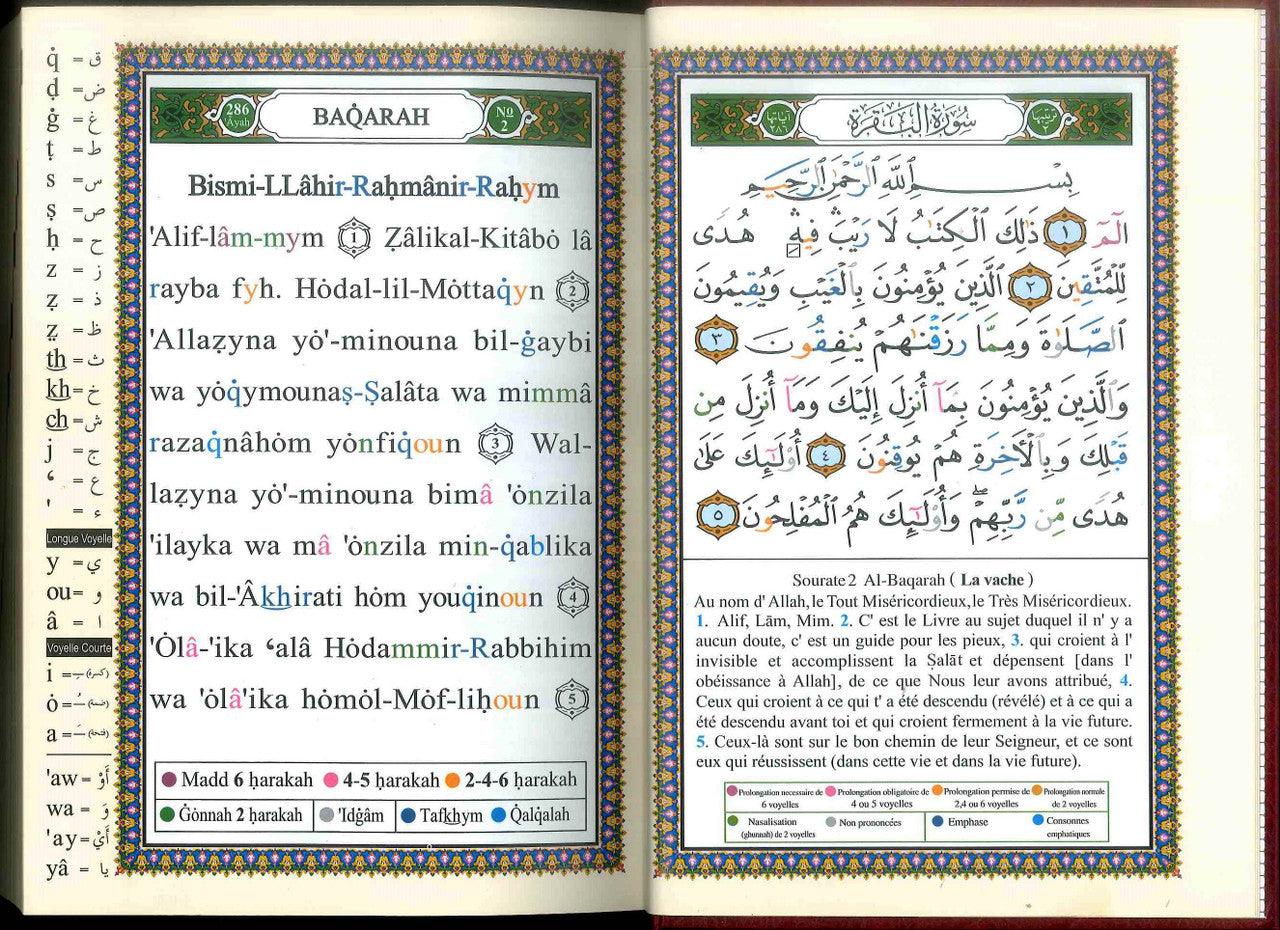 q̇ = ق
ḍ = ض
ġ = غ
ṭ = ط
s = س
ṣ = ص
ḥ = ح
z = ز
ẓ = ذ
ẕ = ظ
th = ث
kh = خ
ch = ش
j = ج
‘ = ع
' = ء
Longue Voyelle
y = ي
ou = و
â = ا
Voyelle Courte
i = ـِ (كسرة)
ȯ = ـُ (ضمة)
a = ـَ (فتحة)
'aw = أَوْ
wa = وَ
'ay = أَيْ
yâ = يا
286 'Âyah
BAQ̇ARAH
No 2
Bismi-LLâhir-Raḥmânir-Raḥym
'Alif-lâm-mym 1 Ẓâlikal-Kitâbȯ lâ
rayba fyh. Hȯdal-lil-Mȯttaq̇yn 2
'Allaẓyna yȯ'-minouna bil-ġaybi
wa yȯq̇ymounaṣ-Ṣalâta wa mimmâ
razaq̇nâhȯm yȯnfiq̇oun 3 Wal-
laẓyna yȯ'-minouna bimâ 'ȯnzila
'ilayka wa mâ 'ȯnzila min-q̇ablika
wa bil-'Âkhirati hȯm youq̇inoun 4
'Ȯlâ-'ika ‘alâ Hȯdammir-Rabbihim
wa 'ȯlâ'ika hȯmȯl-Mȯf-liḥoun 5
Madd 6 ḥarakah 4-5 ḥarakah 2-4-6 ḥarakah
Ġȯnnah 2 ḥarakah 'Idġâm Tafkhym Q̇alq̇alah
ترتيبها ٢
سُورَةُ البَقَرَة
آياتها ٢٨٦
بِسْمِ ٱللَّهِ ٱلرَّحْمَٰنِ ٱلرَّحِيمِ
الٓمٓ ١ ذَٰلِكَ ٱلْكِتَٰبُ لَا رَيْبَۛ فِيهِۛ هُدًى
لِّلْمُتَّقِينَ ٢ ٱلَّذِينَ يُؤْمِنُونَ بِٱلْغَيْبِ وَيُقِيمُونَ
ٱلصَّلَوٰةَ وَمِمَّا رَزَقْنَٰهُمْ يُنفِقُونَ ٣
وَٱلَّذِينَ يُؤْمِنُونَ بِمَآ أُنزِلَ إِلَيْكَ وَمَآ أُنزِلَ مِن
قَبْلِكَ وَبِٱلْأَخِرَةِ هُمْ يُوقِنُونَ ٤ أُو۟لَٰٓئِكَ عَلَىٰ
هُدًى مِّن رَّبِّهِمْ ۖ وَأُو۟لَٰٓئِكَ هُمُ ٱلْمُفْلِحُونَ ٥
Sourate 2 Al-Baqarah ( La vache )
Au nom d' Allah, le Tout Miséricordieux, le Très Miséricordieux.
1. Alif, Lām, Mim. 2. C' est le Livre au sujet duquel il n' y a
aucun doute, c' est un guide pour les pieux, 3. qui croient à l'
invisible et accomplissent la Ṣalāt et dépensent [dans l'
obéissance à Allah], de ce que Nous leur avons attribué, 4.
Ceux qui croient à ce qui t' a été descendu (révélé) et à ce qui a
été descendu avant toi et qui croient fermement à la vie future.
5. Ceux-là sont sur le bon chemin de leur Seigneur, et ce sont
eux qui réussissent (dans cette vie et dans la vie future).
Prolongation necessaire de 6 voyelles
Prolongation obligatoire de 4 ou 5 voyelles
Prolongation permise de 2,4 ou 6 voyelles
Prolongation normale de 2 voyelles
Nasalisation (ghunnah) de 2 voyelles
Non prononcées
Emphase
Consonnes emphatiques